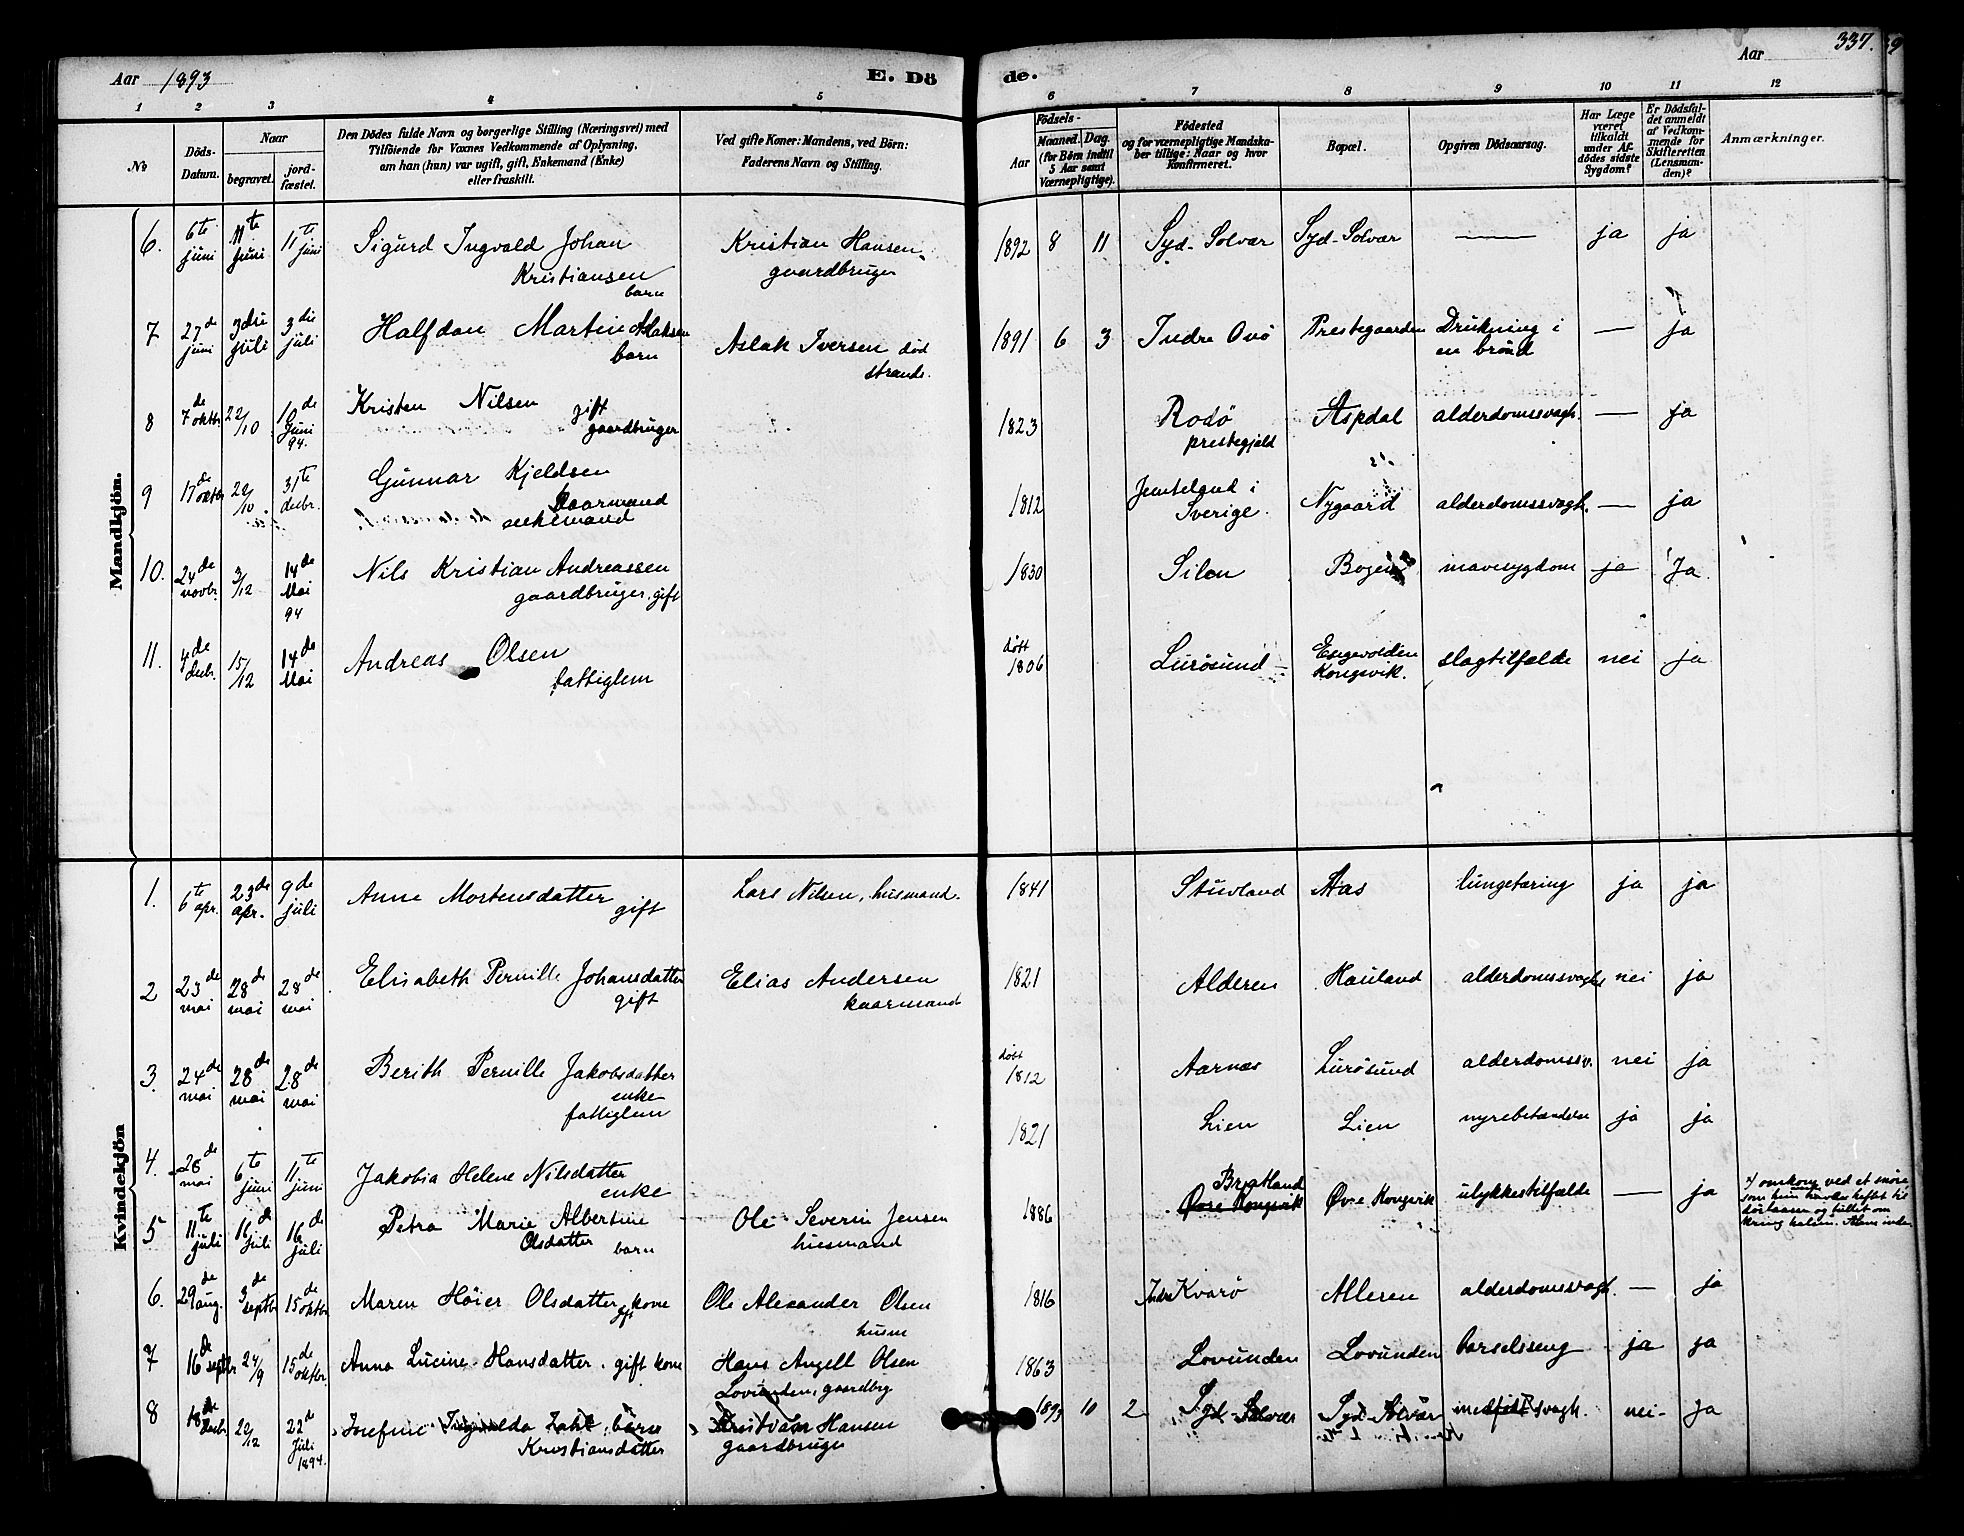 Aar 1893
E. Dö
de.
Aar
337.
1 2 3 4 5 6 7 8 9 10 11 12
No
Döds-
Datum.
Naar
begravet.
jord-
fæstet.
Den Dödes fulde Navn og borgerlige Stilling (Næringsvei) med
Tilföiende for Voxnes Vedkommende af Oplysning,
om han (hun) var ugift, gift, Enkemand (Enke)
eller fraskilt.
Ved gifte Koner: Mandens, ved Börn:
Faderens Navn og Stilling.
Födsels-
Aar
Maaned. Dag.
(for Börn indtil
5 Aar samt
Værnepligtige).
Födested
og for værnepligtige Mandska-
ber tillige: Naar og hvor
Konfirmeret.
Bopæl.
Opgiven Dödsaarsag.
Har Læge
været
tilkaldt
under Af-
dödes sidste
Sygdom?
Er Dödsfal-
det anmeldt
af Vedkom-
mende for
Skifteretten
(Lensman-
den)?
Anmærkninger.
Mandkjön.
6. 6te juni 11te juni 11te juni Sigurd Ingvald Johan Kristiansen barn Kristian Hansen gaardbruger 1892 8 11 Syd-Solvær Syd-Solvær — ja ja
7 27de juni 3die juli 3die juli Halfdan Martin Aslaksen barn Aslak Iversen død strands. 1891 6 3 Indre Onö Prestegaarden Drukning i en brönd — ja
8 7de oktbr 22/10 10de Juni 94. Kristen Nilsen gift gaardbruger 1823 Rodö prestegjeld Aspdal alderdomssvagh. — ja
9 17de oktbr 22/10 31te decbr. Gunnar Kjeldsen kaarmand enkemand 1812 Jemteland i Sverige. Nygaard alderdomssvagh. — ja
10. 24de novbr. 3/12 14de Mai 94 Nils Kristian Andreassen gaardbruger, gift 1830 Silen Bogen mavesygdom ja Ja
11. 4de decbr. 15/12 14de Mai Andreas Olsen fattiglem døbt 1806 Lurösund Kongsvik. slagtilfælde nei ja
Kvindekjön
1. 6te apr. 23de apr. 9de juli Anne Mortensdatter gift Lars Nilsen, husmand. 1841 Stuvland Aas lungetæring ja ja
2 23de mai 28de mai 28de mai Elisabeth Pernille Johansdatter gift Elias Andersen kaarmand 1821 Alderen Hauland alderdomssvagh. nei ja
3. 24de mai 28de mai 28de mai Berith Pernille Jakobsdatter enke fattiglem døbt 1812 Aarnæs Lurösund alderdomssv. nei ja
4. 28de mai 6te juni 11te juni Jakobia Helene Nilsdatter enke 1821 Lien Lien nyrebetændelse ja ja
5 11te juli 16de juli 16de juli Petra Marie Albertine Olsdatter barn Ole Severin Jensen husmand 1886 Bratland Øvre Kongsvik Øvre Kongsvik ulykkestilfælde — ja omkom ved et snöre som hun havde heftet til dörlaasen og tullet om kring halsen.
6. 29de aug. 3de septbr 15de oktbr Maren Höier Olsdatter gift kone Ole Alexander Olsen husm 1816 Indre Kvarö Alleren alderdomssvagh. — ja
7 16de septbr 24/9 15de oktbr. Anna Lucine Hansdatter, gift kone Hans Angell Olsen Lovunden, gaardbrg 1863 Lovunden Lovunden barselseng ja ja
8 18de decbr. 20/12 22de Juli 1894. Josefine Zahl, barn Kristiansdatter Kristian Hansen gaardbruger 1893 10 2 Syd-Solvær Syd-Solvær medfødt svagh. nei- ja